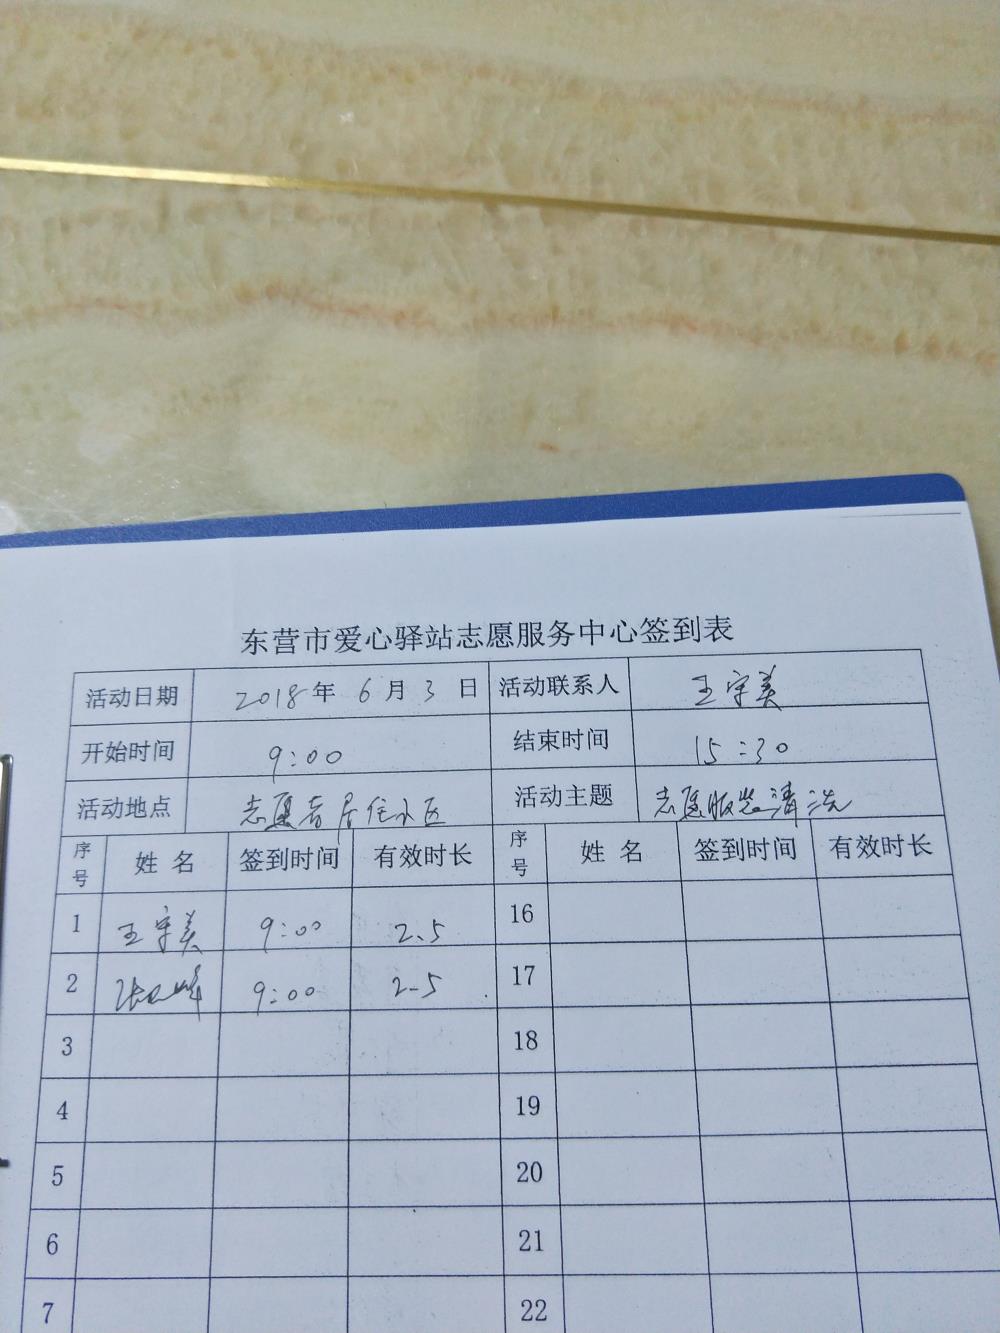 东营市爱心驿站志愿服务中心签到表
活动日期 2018年 6月 3日 活动联系人 王守美
开始时间 9:00 结束时间 15:30
活动地点 志愿者居住小区 活动主题 志愿服装清洗
序号 姓名 签到时间 有效时长 序号 姓名 签到时间 有效时长
1 王守美 9:00 2.5 16
2 9:00 2.5 17
3 18
4 19
5 20
6 21
7 22